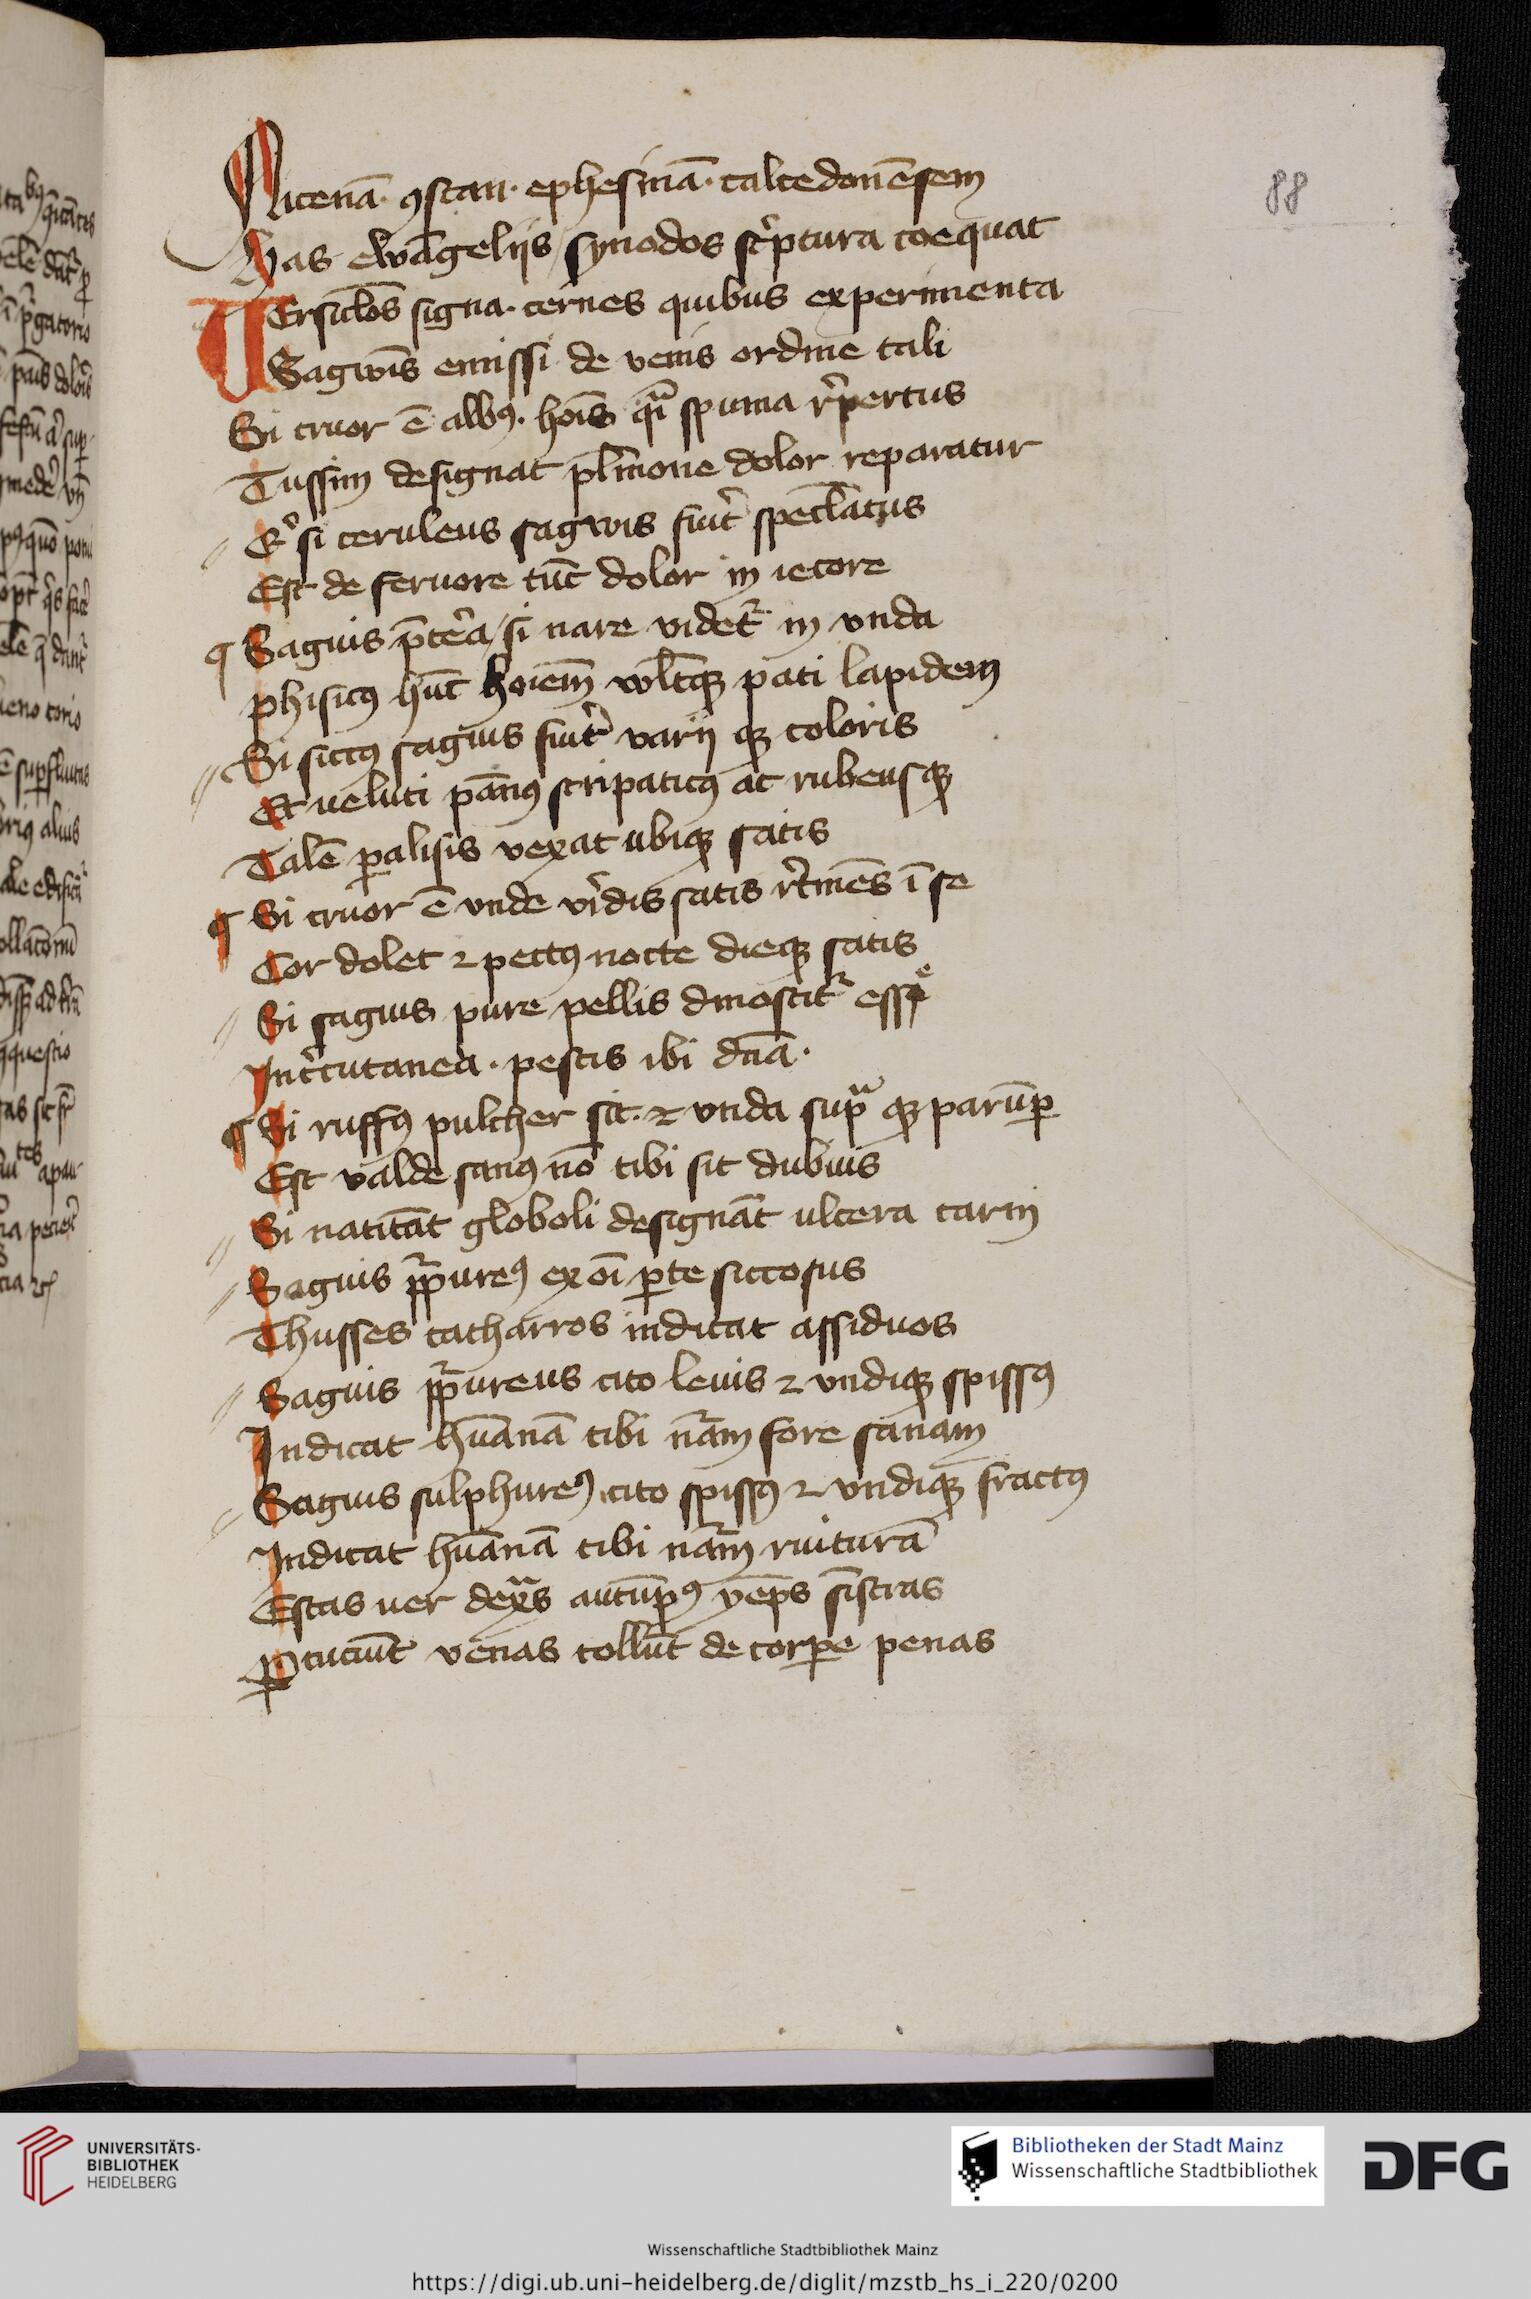 88
Nicenā· ꝯstan· ephesinā· calcedonēsem
Has ewāgelijs synodos sc'ptura coequat
Versiclos signa· cernes quibus experimenta
Sagwīs emissi de venis ordine tali
Si cruor ē albꝰ· hoīs qͣi spuma r'pertus
Tussim designat pl'mone dolor reparatur
Et si ceruleus sagwis fuīt spec̄latus
Est de feruore tūc dolor in iecore
Saguis p̄tea si nare videt' in vnda
phisicꝰ hūc hoiem wltqꝫ pati lapidem
Si siccꝰ saguis fuīt varij qꝫ coloris
Et veluti pānꝰ stripaticꝰ ac rubeusqꝫ
Talē ꝑalisis vexat ubiqꝫ satis
Si cruor ē vnde v'dis satis r'tinēs ī se
Cor dolet ⁊ pectꝰ nocte dieqꝫ satis
Si saguis pure pellis dinoscit' esse
Int'cutanea· pestis ibi dn̄a·
Si ruffꝰ pulcher sit· ⁊ vnda supͣ qꝫ parūꝑ
Est valde sanꝰ nō tibi sit dubius
Si natitāt globoli designāt ulcera carni
Saguis pͬpureꝰ ex oī ꝑte siccosus
Thusses catharros indicat assiduos
Saguis pͬpureus cito leuis ⁊ vndiqꝫ spissꝰ
Indicat hūanā tibi nāͬm fore sanam
Saguis sulphureꝰ cito spissꝰ ⁊ vndiqꝫ fractꝰ
Indicat hūanā tibi nāͬm ruiturā
Estas uer dexͣs autūpꝰ yeps sīstras
ꝑcuciūt venas tollūt de corꝑe penas
UNIVERSITÄTS-
BIBLIOTHEK
HEIDELBERG
Bibliotheken der Stadt Mainz
Wissenschaftliche Stadtbibliothek
DFG
Wissenschaftliche Stadtbibliothek Mainz
https://digi.ub.uni-heidelberg.de/diglit/mzstb_hs_i_220/0200